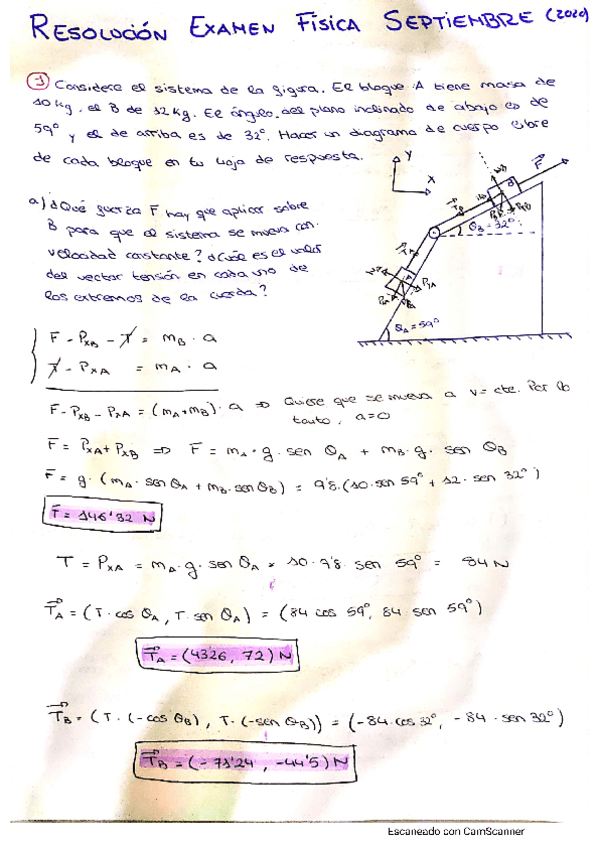 RESOLUCIÓN EXAMEN FÍSICA SEPTIEMBRE (2020)
1 Considere el sistema de la figura. El bloque A tiene masa de
10 kg, el B de 12 kg. El ángulo del plano inclinado de abajo es de
59° y el de arriba es de 32°. Hacer un diagrama de cuerpo libre
de cada bloque en tu hoja de respuesta.
a) ¿Qué fuerza F hay que aplicar sobre
B para que el sistema se mueva con
velocidad constante? ¿Cuál es el valor
del vector tensión en cada uno de
los extremos de la cuerda?
Y
X
F
B
θB = 32°
A
θA = 59°
F - PxB - T = mB · a
T - PxA = mA · a
F - PxB - PxA = (mA + mB) · a ⇒ Quiere que se mueva a v = cte. Por lo
tanto, a = 0
F = PxA + PxB ⇒ F = mA · g · sen θA + mB · g · sen θB
F = g · (mA · sen θA + mB · sen θB) = 9'8 · (10 · sen 59° + 12 · sen 32°)
F = 146'32 N
T = PxA = mA · g · sen θA = 10 · 9'8 · sen 59° = 84 N
T⃗A = (T · cos θA, T · sen θA) = (84 cos 59°, 84 sen 59°)
T⃗A = (43'26, 72) N
T⃗B = (T · (-cos θB), T · (-sen θB)) = (-84 · cos 32°, -84 · sen 32°)
T⃗B = (-71'24, -44'5) N
Escaneado con CamScanner